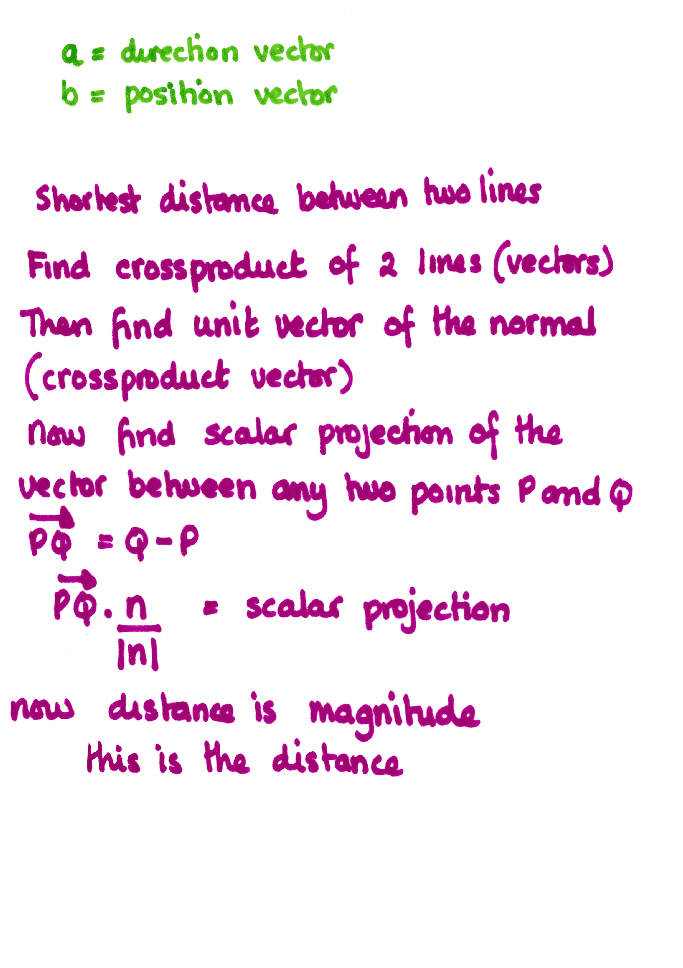 a = direction vector
b = position vector
Shortest distance between two lines
Find crossproduct of 2 lines (vectors)
Then find unit vector of the normal
(crossproduct vector)
now find scalar projection of the
vector between any two points P and Q
PQ⃗ = Q - P
PQ⃗ . n = scalar projection
|n|
now distance is magnitude
this is the distance